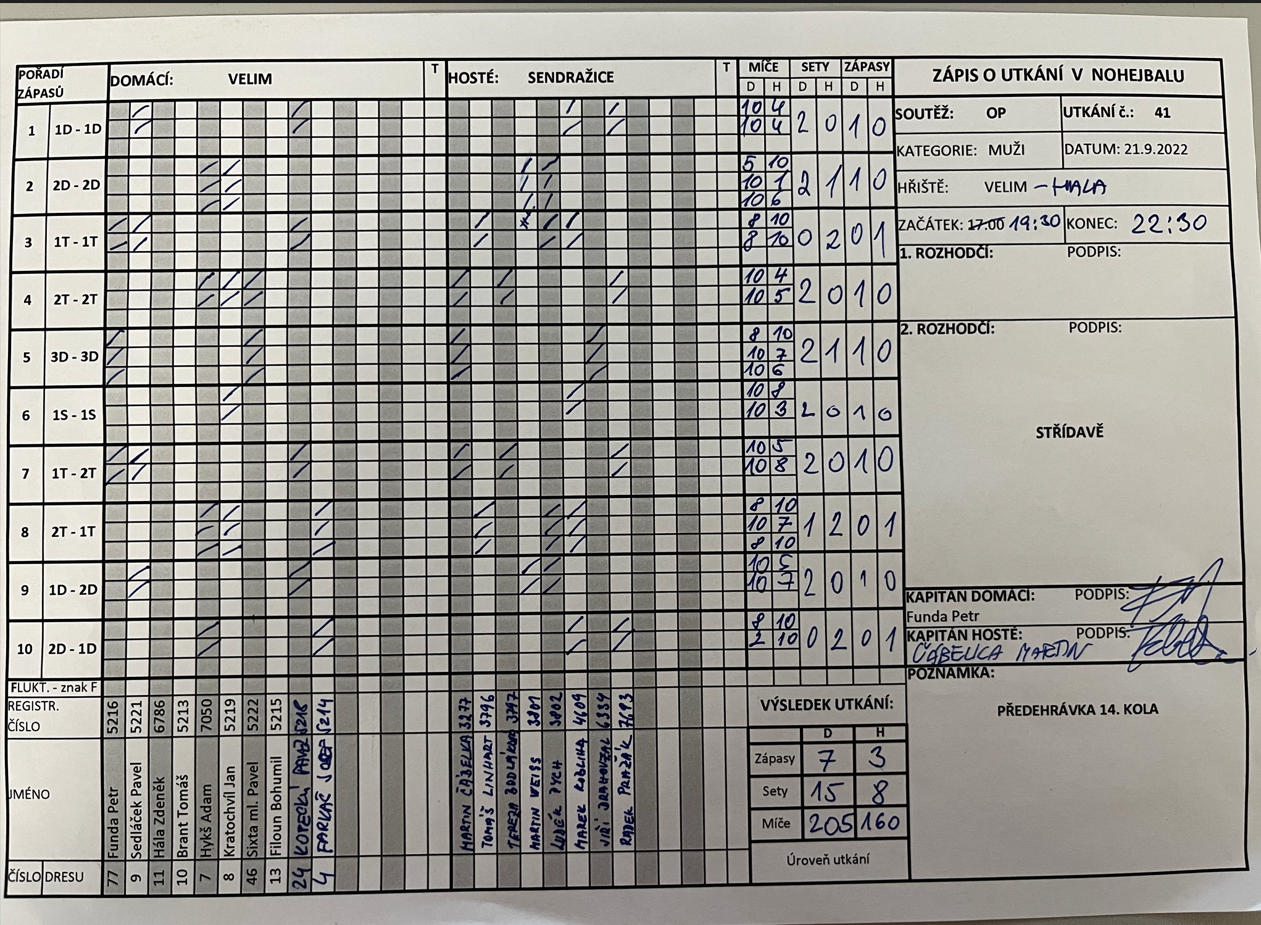 POŘADÍ ZÁPASŮ DOMÁCÍ: VELIM T HOSTÉ: SENDRAŽICE T MÍČE SETY ZÁPASY
D H D H D H
1 1D - 1D 10 4 2 0 1 0
10 4
2 2D - 2D 5 10 2 1 1 0
10 1
10 6
3 1T - 1T 8 10 0 2 0 1
8 10
4 2T - 2T 10 4 2 0 1 0
10 5
5 3D - 3D 8 10 2 1 1 0
10 7
10 6
6 1S - 1S 10 8 2 0 1 0
10 3
7 1T - 2T 10 5 2 0 1 0
10 8
8 2T - 1T 8 10 1 2 0 1
10 7
8 10
9 1D - 2D 10 5 2 0 1 0
10 7
10 2D - 1D 8 10 0 2 0 1
2 10
FLUKT. - znak F
REGISTR. ČÍSLO
JMÉNO
ČÍSLO DRESU
77 Funda Petr 5216
9 Sedláček Pavel 5221
11 Hála Zdeněk 6786
10 Brant Tomáš 5213
7 Hykš Adam 7050
8 Kratochvíl Jan 5219
46 Sixta ml. Pavel 5222
13 Filoun Bohumil 5215
24 5218
4 5214
MARTIN ČÁBELKA 3277
TOMÁŠ LINHART 3796
TEREZA 3797
MARTIN WEISS 3801
LUDĚK 3802
MAREK 4609
JIŘÍ 6334
RADEK PRAŽÁK 7693
ZÁPIS O UTKÁNÍ V NOHEJBALU
SOUTĚŽ: OP UTKÁNÍ č.: 41
KATEGORIE: MUŽI DATUM: 21.9.2022
HŘIŠTĚ: VELIM - HALA
ZAČÁTEK: 17:00 19:30 KONEC: 22:30
1. ROZHODČÍ: PODPIS:
2. ROZHODČÍ: PODPIS:
STŘÍDAVĚ
KAPITÁN DOMÁCÍ: PODPIS:
Funda Petr
KAPITÁN HOSTÉ: PODPIS:
ČÁBELKA MARTIN
POZNÁMKA:
PŘEDEHRÁVKA 14. KOLA
VÝSLEDEK UTKÁNÍ:
D H
Zápasy 7 3
Sety 15 8
Míče 205 160
Úroveň utkání